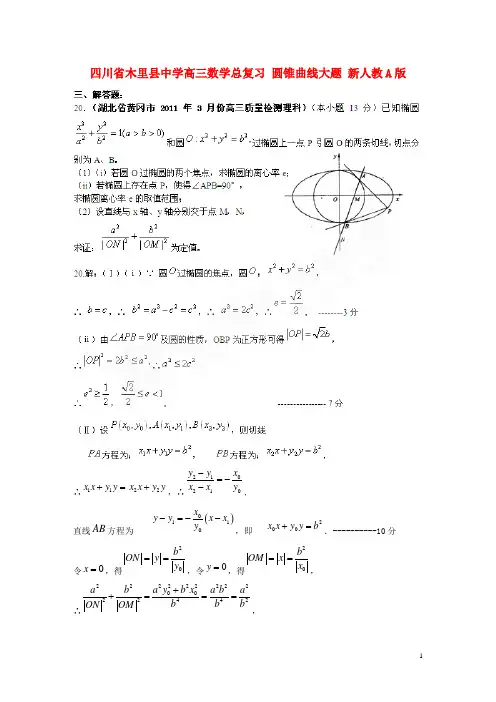 四川省木里县中学高三数学总复习 圆锥曲线大题 新人教A版
三、解答题:
20.（湖北省黄冈市 2011 年 3 月份高三质量检测理科）(本小题 13 分)已知椭圆
x²/a² + y²/b² = 1(a > b > 0) 和圆 O: x² + y² = b²,过椭圆上一点 P 引圆 O 的两条切线,切点分
别为 A、B。
(1)(i) 若圆 O 过椭圆的两个焦点,求椭圆的离心率 e;
(ii) 若椭圆上存在点 P,使得∠APB=90°,
求椭圆离心率 e 的取值范围;
(2) 设直线与 x 轴、y 轴分别交于点 M,N,
求证: a²/|ON|² + b²/|OM|² 为定值。
y
A
O
M
x
B
P
N
20.解:(Ⅰ)(ⅰ)∵ 圆O过椭圆的焦点,圆O: x² + y² = b²,
∴ b = c, ∴ b² = a² − c² = c², ∴ a² = 2c², ∴ e = √2/2. --------3 分
(ⅱ) 由∠APB = 90°及圆的性质, OBP 为正方形可得 |OP| = √2b,
∴ |OP|² = 2b² ≤ a², ∴ a² ≤ 2c²
∴ e² ≥ 1/2, √2/2 ≤ e < 1. ----------------7 分
(Ⅱ)设 P(x₀, y₀), A(x₁, y₁), B(x₂, y₂), 则切线
PA方程为: x₁x + y₁y = b², PB方程为: x₂x + y₂y = b²,
∴ x₁x + y₁y = x₂x + y₂y, ∴ (y₂ − y₁)/(x₂ − x₁) = −x₀/y₀,
直线 AB 方程为 y − y₁ = −(x₀/y₀)(x − x₁), 即 x₀x + y₀y = b². ----------10 分
令 x = 0, 得 |ON| = |y| = b²/|y₀|, 令 y = 0, 得 |OM| = |x| = b²/|x₀|,
∴ a²/|ON|² + b²/|OM|² = (a²y₀² + b²x₀²)/b⁴ = a²b²/b⁴ = a²/b²,
1